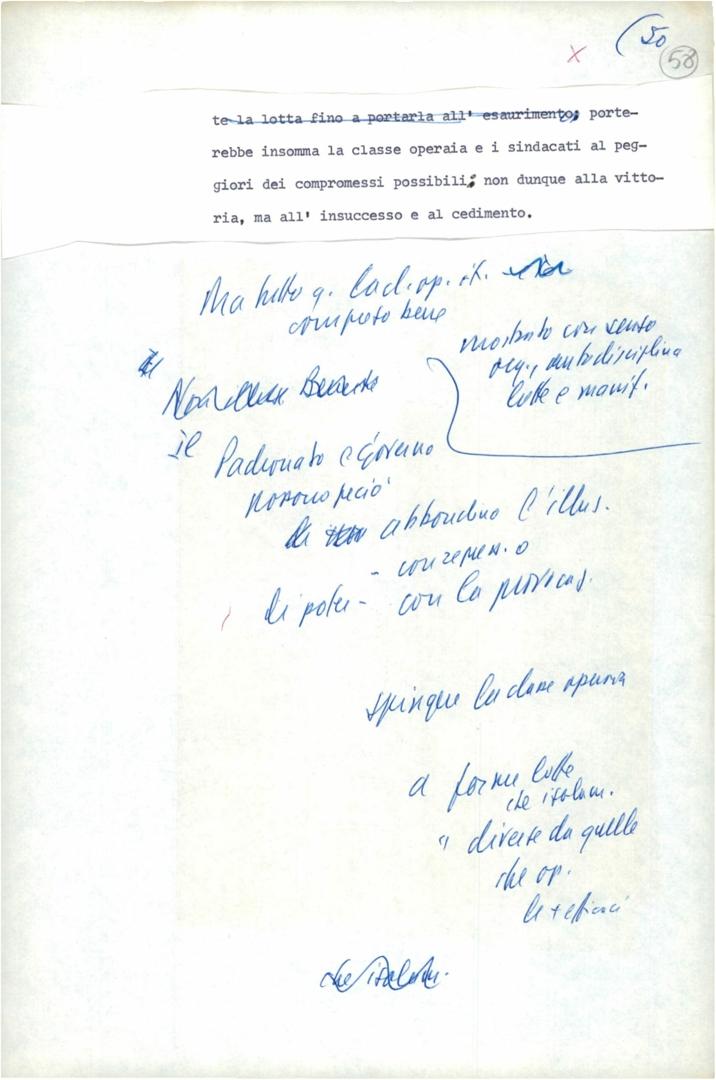 (50
58
te la lotta fino a portarla all' esaurimento; porte-
rebbe insomma la classe operaia e i sindacati al peg-
giori dei compromessi possibili; non dunque alla vitto-
ria, ma all' insuccesso e al cedimento.
Ma tutto q. la cl. op. it.
mostrato con senso
org., autodisciplina
lotte e manif.
il Padronato e Governo
abbandino l'illus.
di poter - con la provocaz.
spingere la classe operaia
a forme lotte
che isolan.
diverse da quelle
che op.
le + efficaci
che isolan.